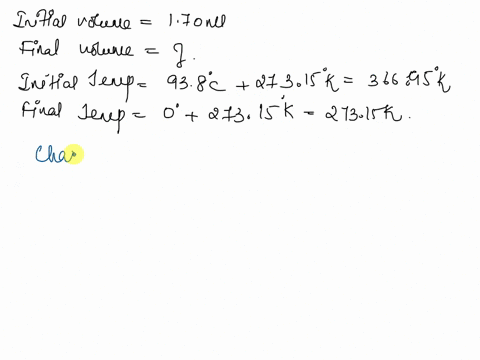 Initial volume = 1.70 ml
Final volume = ?.
Initial Temp = 93.8°C + 273.15°K = 366.95°K
Final Temp = 0° + 273.15°K = 273.15K.
Cha